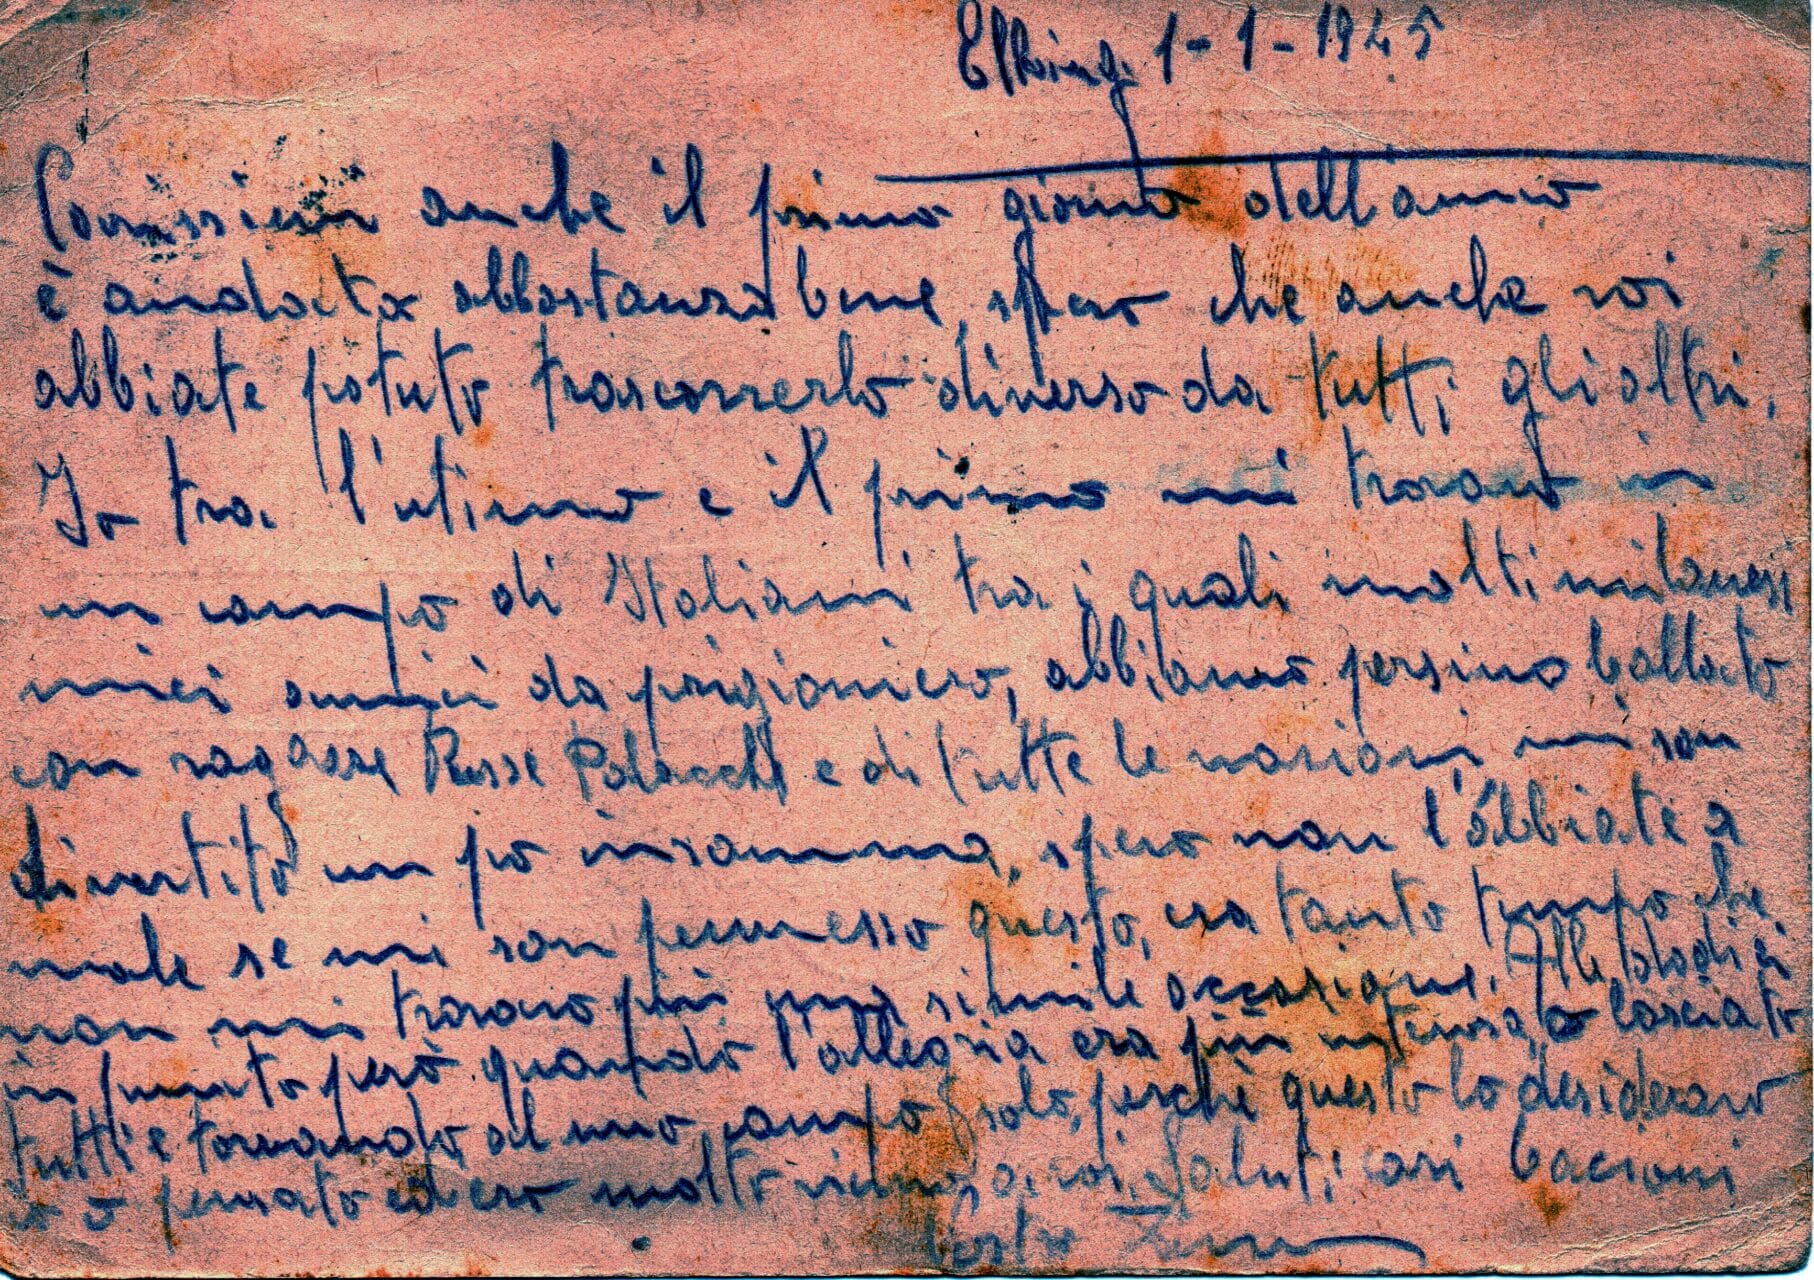 Elbing, 1-1-1945
Carissimi anche il primo giorno dell'anno
è andato abbastanza bene, spero che anche voi
abbiate potuto trascorrerlo diverso da tutti gli altri.
Io tra l'utimo e il primo mi trovavo in
un campo di Italiani tra i quali molti milanesi
miei amici da prigioniero, abbiamo persino ballato
con ragazze Russe Polacche e di tutte le nazioni, mi son
divertito un po insomma, spero non l'abbiate a
male se mi son permesso questo, era tanto tempo che
non mi trovavo più una simile occasione. Alle dodici
in punto però quando l'allegria era più intensa, o lasciato
tutti e tornando al mio campo solo, perchè questo lo desideravo
o pensato ed ero molto vicino a voi. Saluti cari Bacioni
Vostro